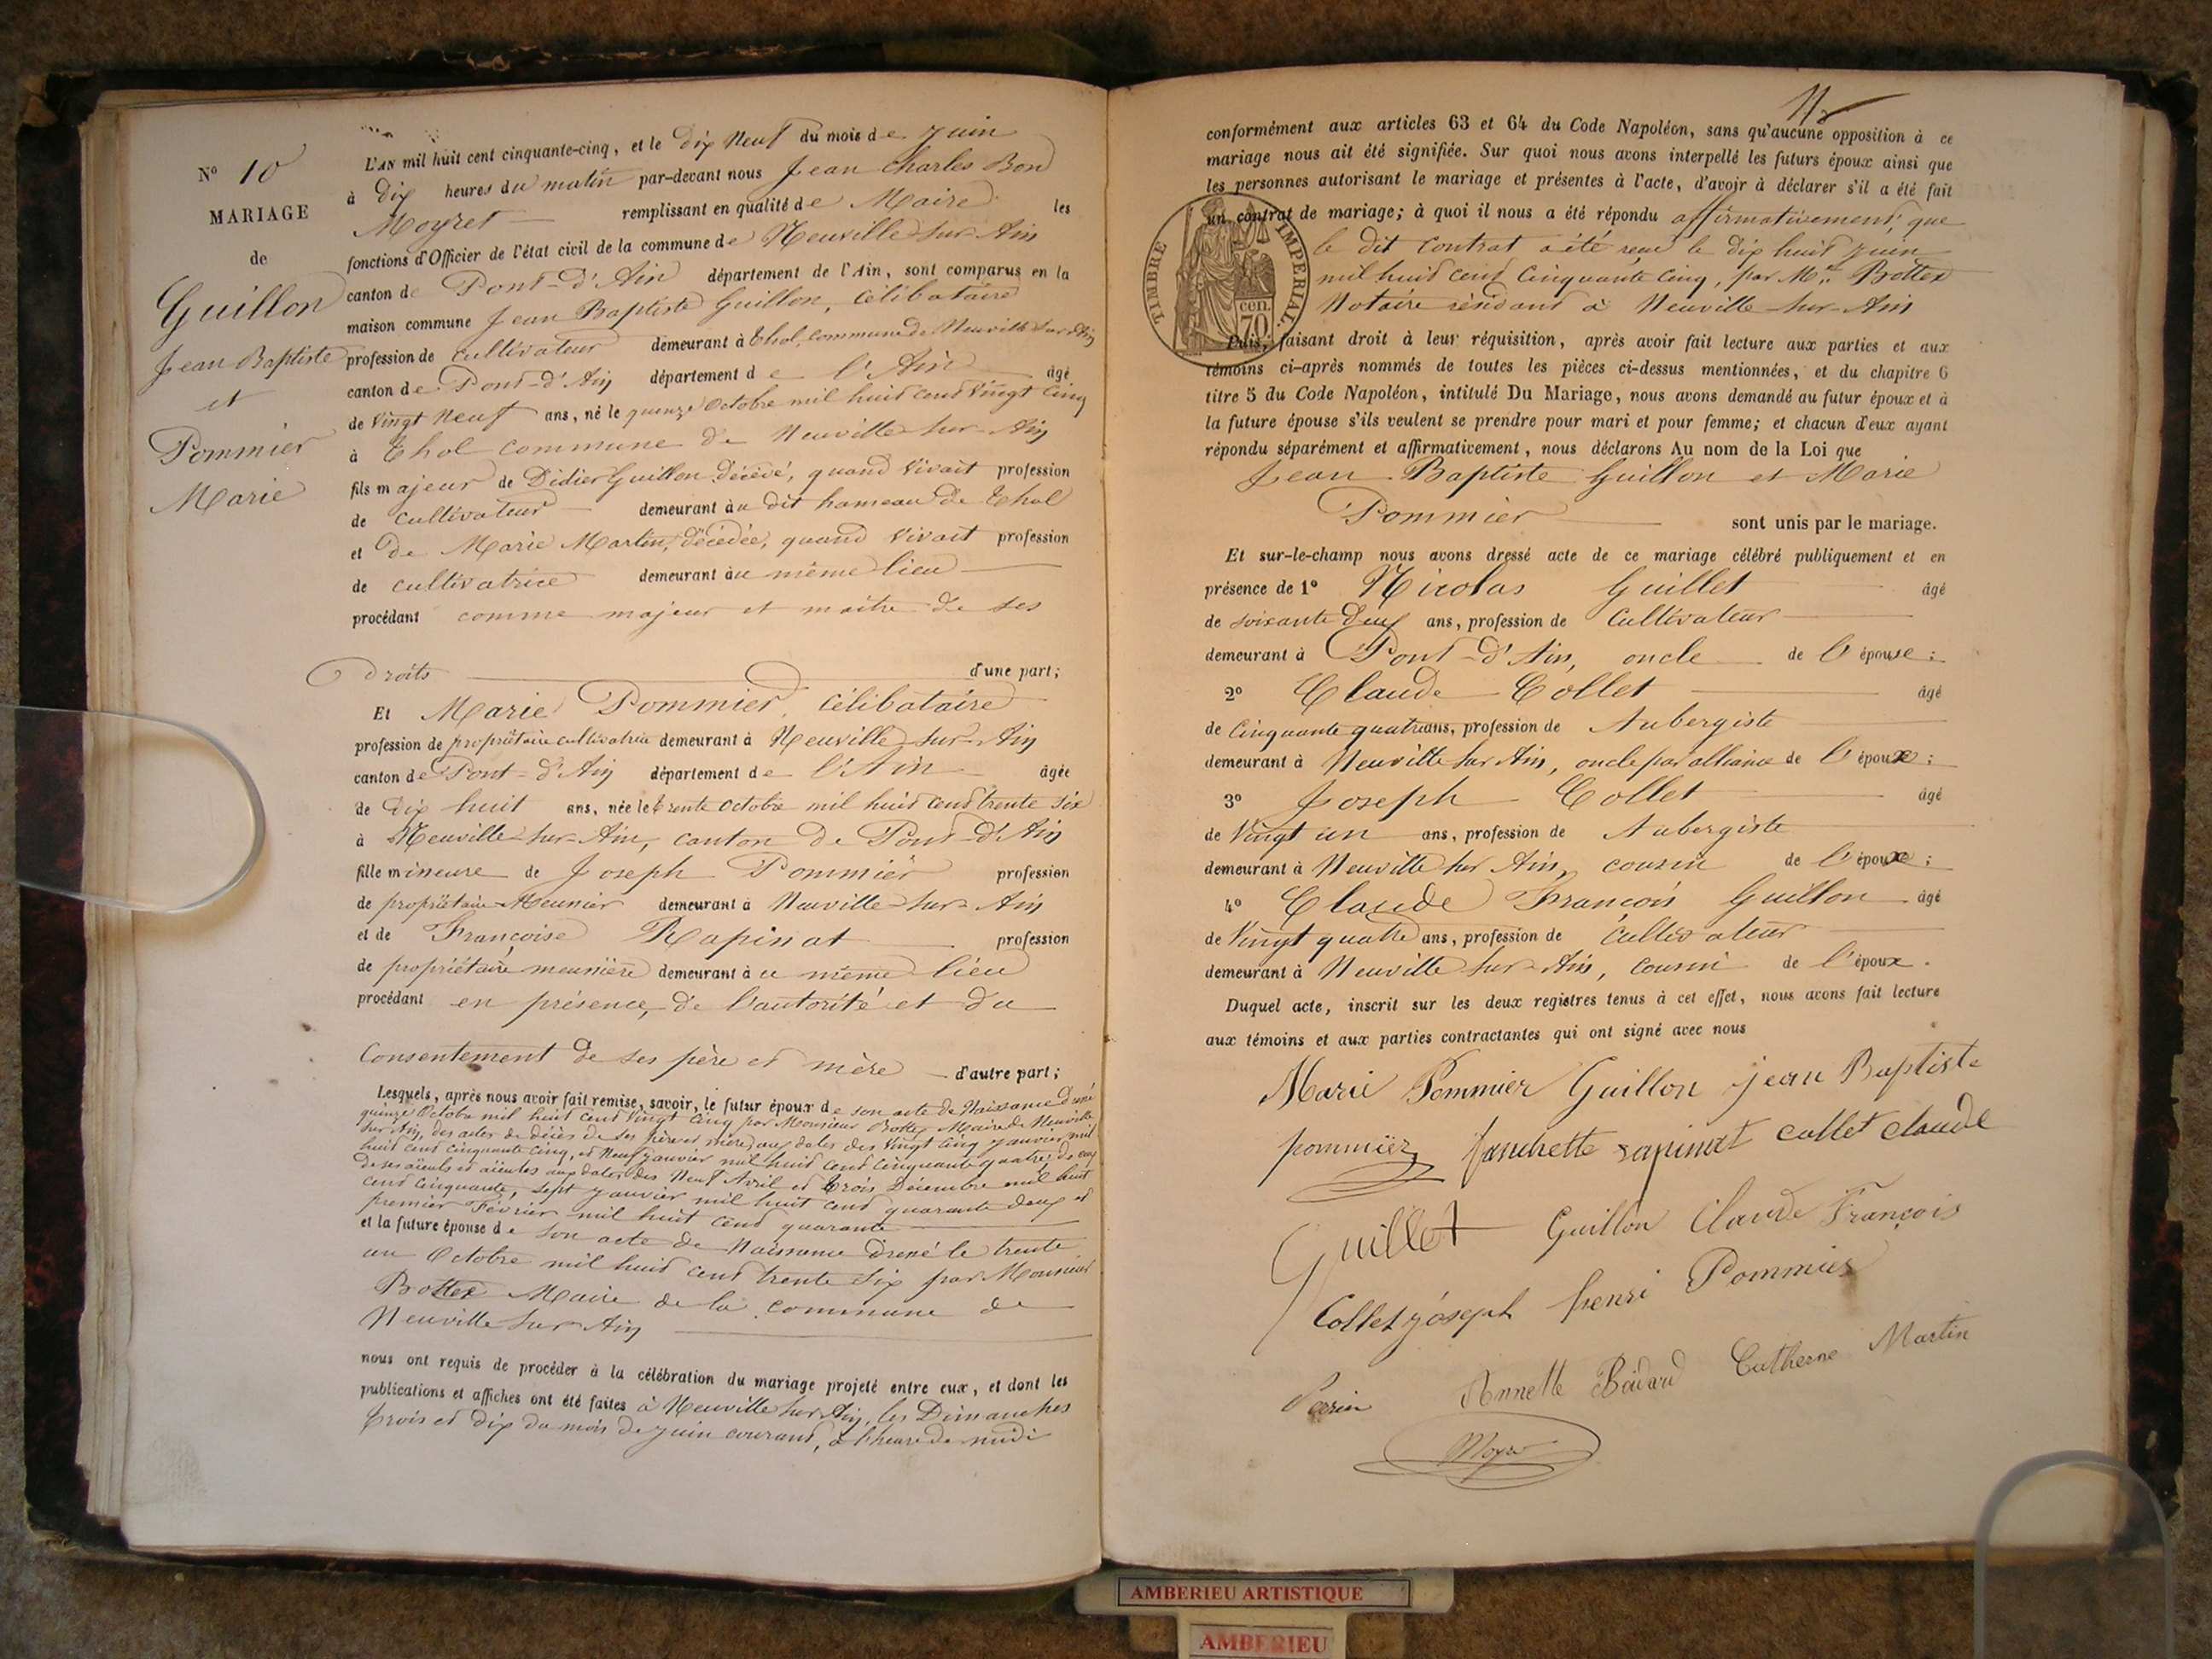 N° 10
MARIAGE
de
Guillon
Jean Baptiste
et
Pommier
Marie
L'AN mil huit cent cinquante-cinq, et le dix Neuf du mois de Juin
à dix heures du matin par-devant nous Jean Charles Bon
Moyret remplissant en qualité de Maire les
fonctions d'Officier de l'état civil de la commune de Neuville sur Ain
canton de Pont-d'Ain département de l'Ain, sont comparus en la
maison commune Jean Baptiste Guillon, célibataire
profession de cultivateur demeurant à Thol, commune de Neuville sur Ain
canton de Pont-d'Ain département de l'Ain âgé
de Vingt Neuf ans, né le quinze Octobre mil huit cent Vingt Cinq
à Thol commune de Neuville sur Ain
fils majeur de Didier Guillon décédé, quand vivait profession
de cultivateur demeurant au dit hameau de Thol
et de Marie Martin, décédée, quand vivait profession
de cultivatrice demeurant au même lieu
procédant comme majeur et maître de ses
droits d'une part;
Et Marie Pommier, célibataire
profession de propriétaire cultivatrice demeurant à Neuville-sur-Ain
canton de Pont-d'Ain département de l'Ain âgée
de dix huit ans, née le trente Octobre mil huit cent trente six
à Neuville-sur-Ain, canton de Pont-d'Ain
fille mineure de Joseph Pommier profession
de propriétaire Meunier demeurant à Neuville-sur-Ain
et de Françoise Rapinat profession
de propriétaire meunière demeurant à u même lieu
procédant en présence, de l'autorité et du
Consentement de ses père et mère d'autre part;
Lesquels, après nous avoir fait remise, savoir, le futur époux de son acte de Naissance dressé
quinze Octobre mil huit cent Vingt Cinq par Monsieur Bottex Maire de Neuville
sur Ain, des actes de décès de ses père et mère, aux dates des Vingt Cinq Janvier mil
huit cent cinquante cinq, et Neuf Janvier mil huit cent cinquante quatre, de ceux
de ses aïeuls et aïeules aux dates des Neuf Avril et trois Décembre mil huit
cent cinquante, sept Janvier mil huit cent quarante deux et
premier Février mil huit cent quarante
et la future épouse de son acte de Naissance dressé le trente
un Octobre mil huit cent trente six par Monsieur
Bottex Maire de la commune de
Neuville sur Ain
nous ont requis de procéder à la célébration du mariage projeté entre eux, et dont les
publications et affiches ont été faites à Neuville sur Ain, les Dimanches
trois et dix du mois de Juin courant, à l'heure de midi
conformément aux articles 63 et 64 du Code Napoléon, sans qu'aucune opposition à ce
mariage nous ait été signifiée. Sur quoi nous avons interpellé les futurs époux ainsi que
les personnes autorisant le mariage et présentes à l'acte, d'avoir à déclarer s'il a été fait
un contrat de mariage; à quoi il nous a été répondu affirmativement; que
le dit contrat a été reçu le dix huit Juin
mil huit cent cinquante cinq, par Me Bottex
Notaire résidant à Neuville-sur-Ain
TIMBRE IMPERIAL
cen.
70.
Puis, faisant droit à leur réquisition, après avoir fait lecture aux parties et aux
témoins ci-après nommés de toutes les pièces ci-dessus mentionnées, et du chapitre 6
titre 5 du Code Napoléon, intitulé Du Mariage, nous avons demandé au futur époux et à
la future épouse s'ils veulent se prendre pour mari et pour femme; et chacun d'eux ayant
répondu séparément et affirmativement, nous déclarons Au nom de la Loi que
Jean Baptiste Guillon et Marie
Pommier sont unis par le mariage.
Et sur-le-champ nous avons dressé acte de ce mariage célébré publiquement et en
présence de 1° Nicolas Guillet âgé
de soixante deux ans, profession de Cultivateur
demeurant à Pont-d'Ain, oncle de l'épouse;
2° Claude Collet âgé
de Cinquante quatre ans, profession de Aubergiste
demeurant à Neuville sur Ain, oncle par alliance de l'époux;
3° Joseph Collet âgé
de Vingt un ans, profession de Aubergiste
demeurant à Neuville sur Ain, cousin de l'époux;
4° Claude François Guillon âgé
de Vingt quatre ans, profession de Cultivateur
demeurant à Neuville sur-Ain, cousin de l'époux.
Duquel acte, inscrit sur les deux registres tenus à cet effet, nous avons fait lecture
aux témoins et aux parties contractantes qui ont signé avec nous
Marie Pommier Guillon jean Baptiste
pommier fanchette rapinat collet claude
Guillet Guillon Claude François
Collet joseph henri Pommier
Perrin Annette Catherne Martin
AMBERIEU ARTISTIQUE
AMBERIEU